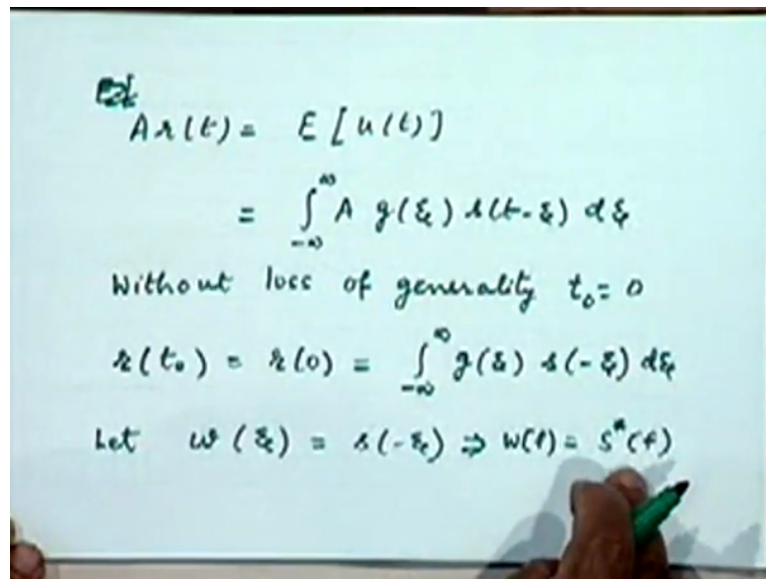 A r(t) = E [u(t)]
= ∫_{-∞}^{∞} A g(ξ) s(t-ξ) dξ
Without loss of generality t₀ = 0
r(t₀) = r(0) = ∫_{-∞}^{∞} g(ξ) s(-ξ) dξ
Let w(ξ) = s(-ξ) ⇒ W(f) = S*(f)